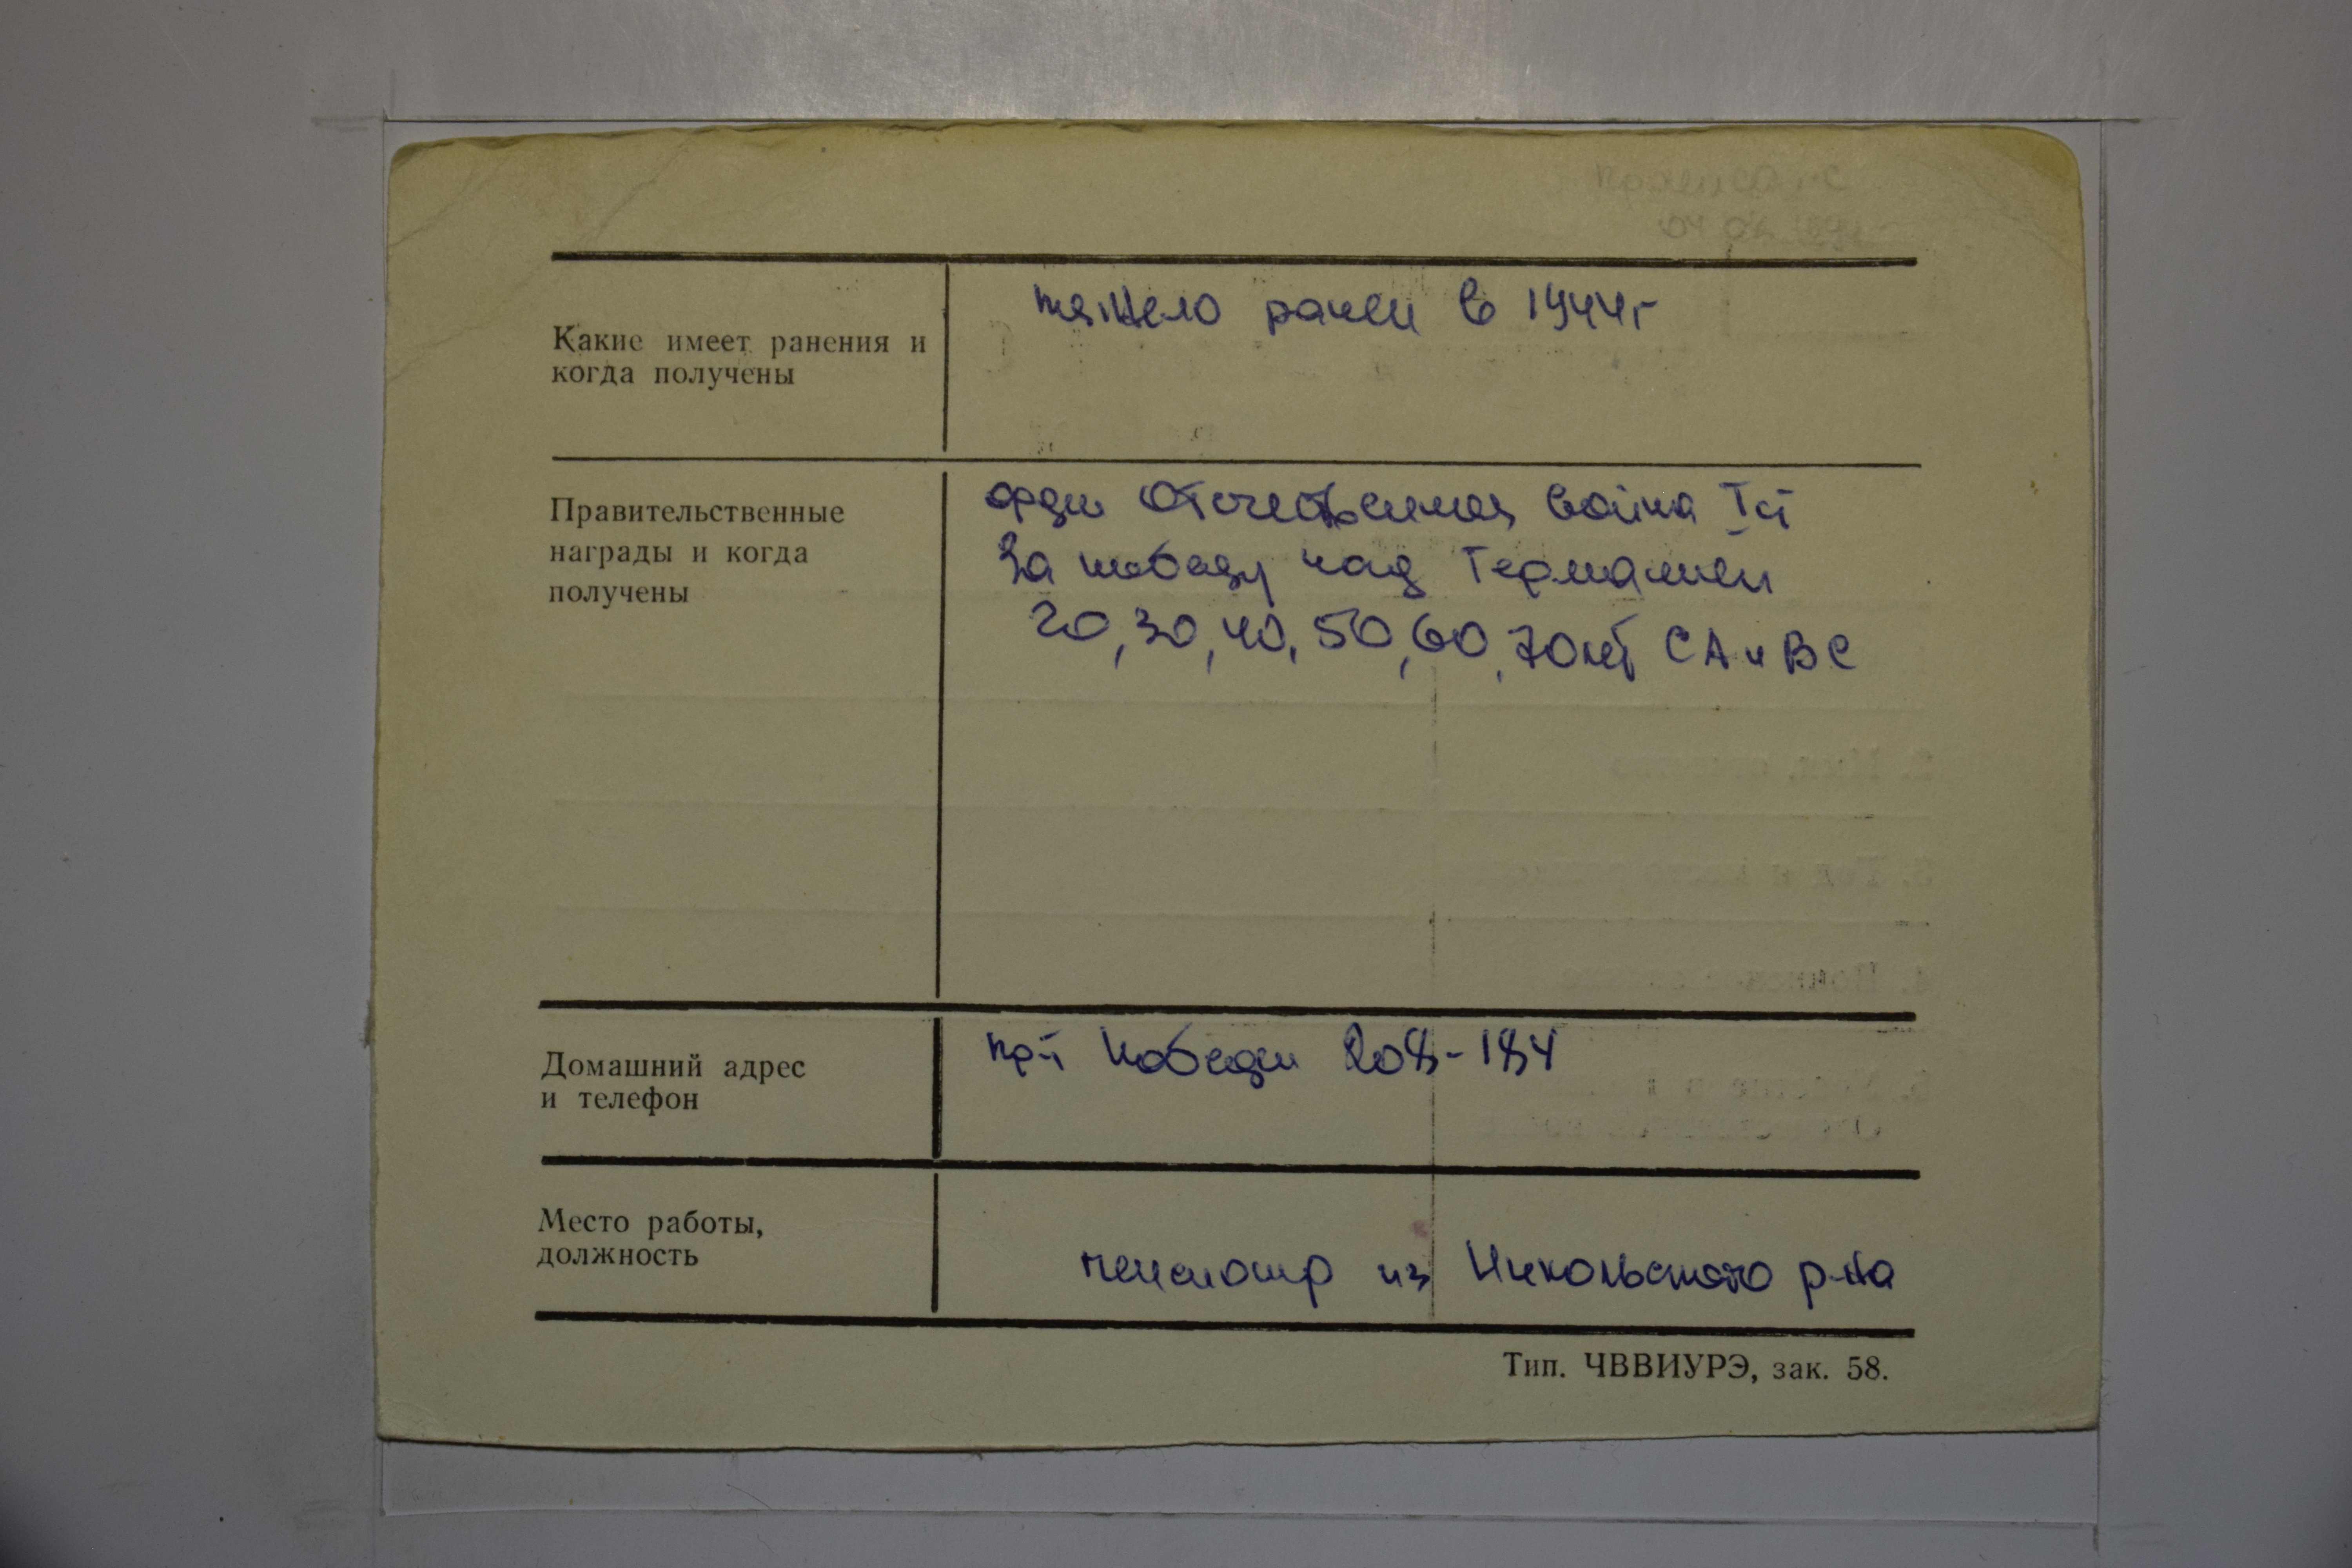 Какие имеет ранения и
когда получены
тяжело ранен в 1944г
Правительственные
награды и когда
получены
орден Отечественная война I ст
За победу над Германией
20, 30, 40, 50, 60, 70 лет СА и ВС
Домашний адрес
и телефон
пр-т Победы 208-184
Место работы,
должность
пенсионер из Никольского р-на
Тип. ЧВВИУРЭ, зак. 58.